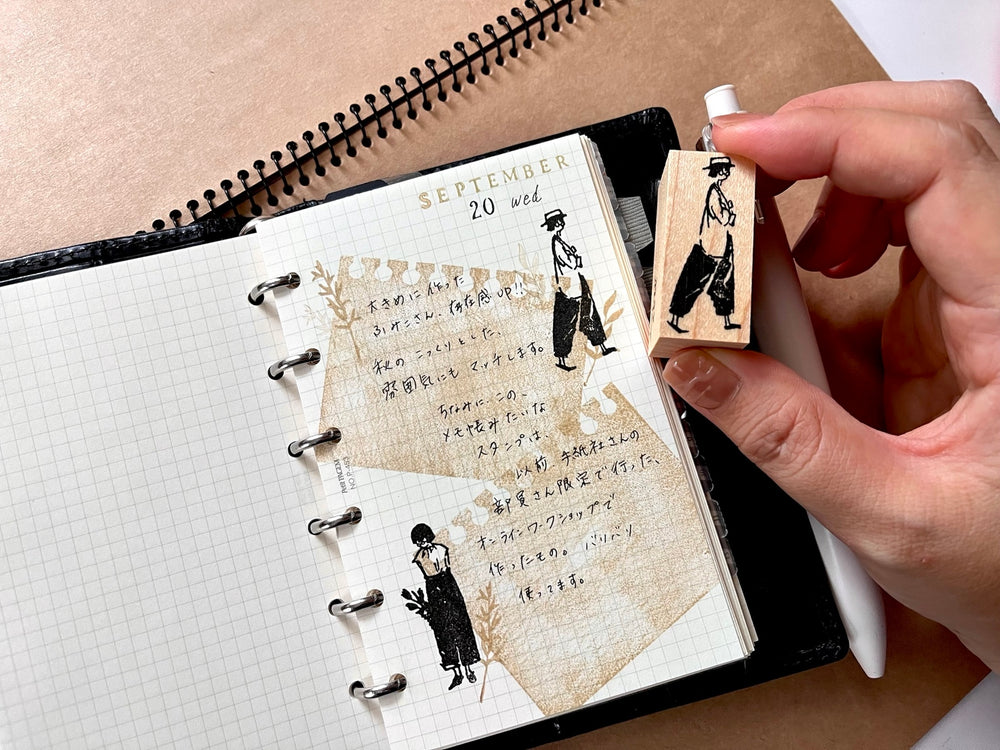 SEPTEMBER
20 wed
大きめに作った
ふみこさん、存在感UP!!
秋のこっくりとした、
雰囲気にもマッチします。
ちなみに、この、
メモ帳みたいな
スタンプは、
以前手紙社さんの
部員さん限定で行った、
オンラインワークショップで
作ったもの。バリバリ
使ってます。